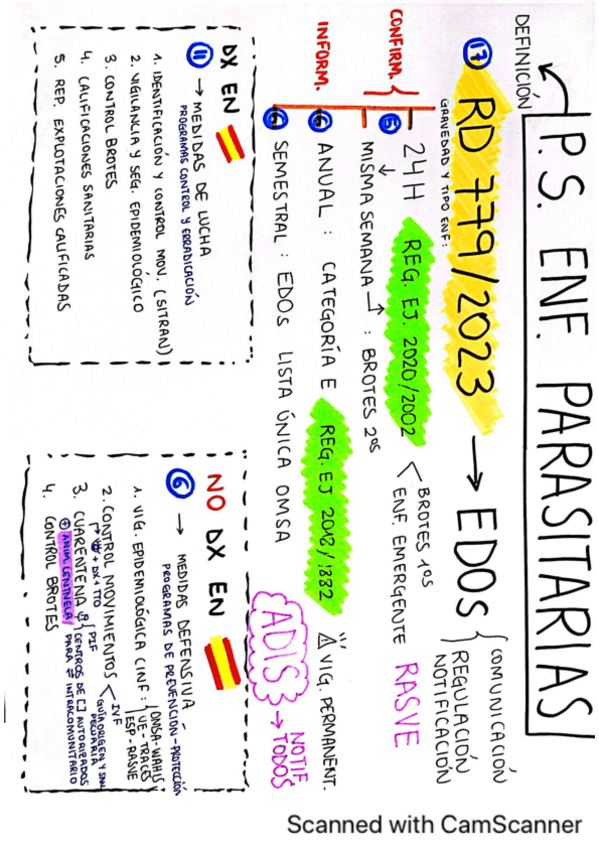 P.S. ENF. PARASITARIAS
DEFINICIÓN
17 RD 779/2023 → EDOS { COMUNICACIÓN
REGULACIÓN
NOTIFICACIÓN
GRAVEDAD Y TIPO ENF:
CONFIRM.
24H REG. EJ. 2020/2002 < BROTES 1ºS
ENF. EMERGENTE RASVE
5 MISMA SEMANA → : BROTES 2ºS
INFORM.
6 ANUAL : CATEGORÍA E REG. EJ 2018/1882 ⚠ VIG. PERMANENT.
6 SEMESTRAL : EDOs LISTA ÚNICA OMSA
ADIS → NOTIF TODOS
DX EN
11 → MEDIDAS DE LUCHA
PROGRAMAS CONTROL Y ERRADICACIÓN
1. IDENTIFICACIÓN Y CONTROL MOV. (SITRAN)
2. VIGILANCIA Y SEG. EPIDEMIOLÓGICO
3. CONTROL BROTES
4. CALIFICACIONES SANITARIAS
5. REP. EXPLOTACIONES CALIFICADAS
NO DX EN
6 → MEDIDAS DEFENSIVA
PROGRAMAS DE PREVENCIÓN-PROTECCIÓN
1. VIG. EPIDEMIOLÓGICA CINF: { OMSA-WAHIS
UE-TRACES
ESP-RASVE
2. CONTROL MOVIMIENTOS < IVF
GUÍA ORIGEN Y SAN. PECUARIA
+ DX + TTO
3. CUARENTENA PIF
CENTROS DE [] AUTORIZADOS
⊕ ANIM. CENTINELA PARA ⇄ INTRACOMUNITARIO
4. CONTROL BROTES
Scanned with CamScanner